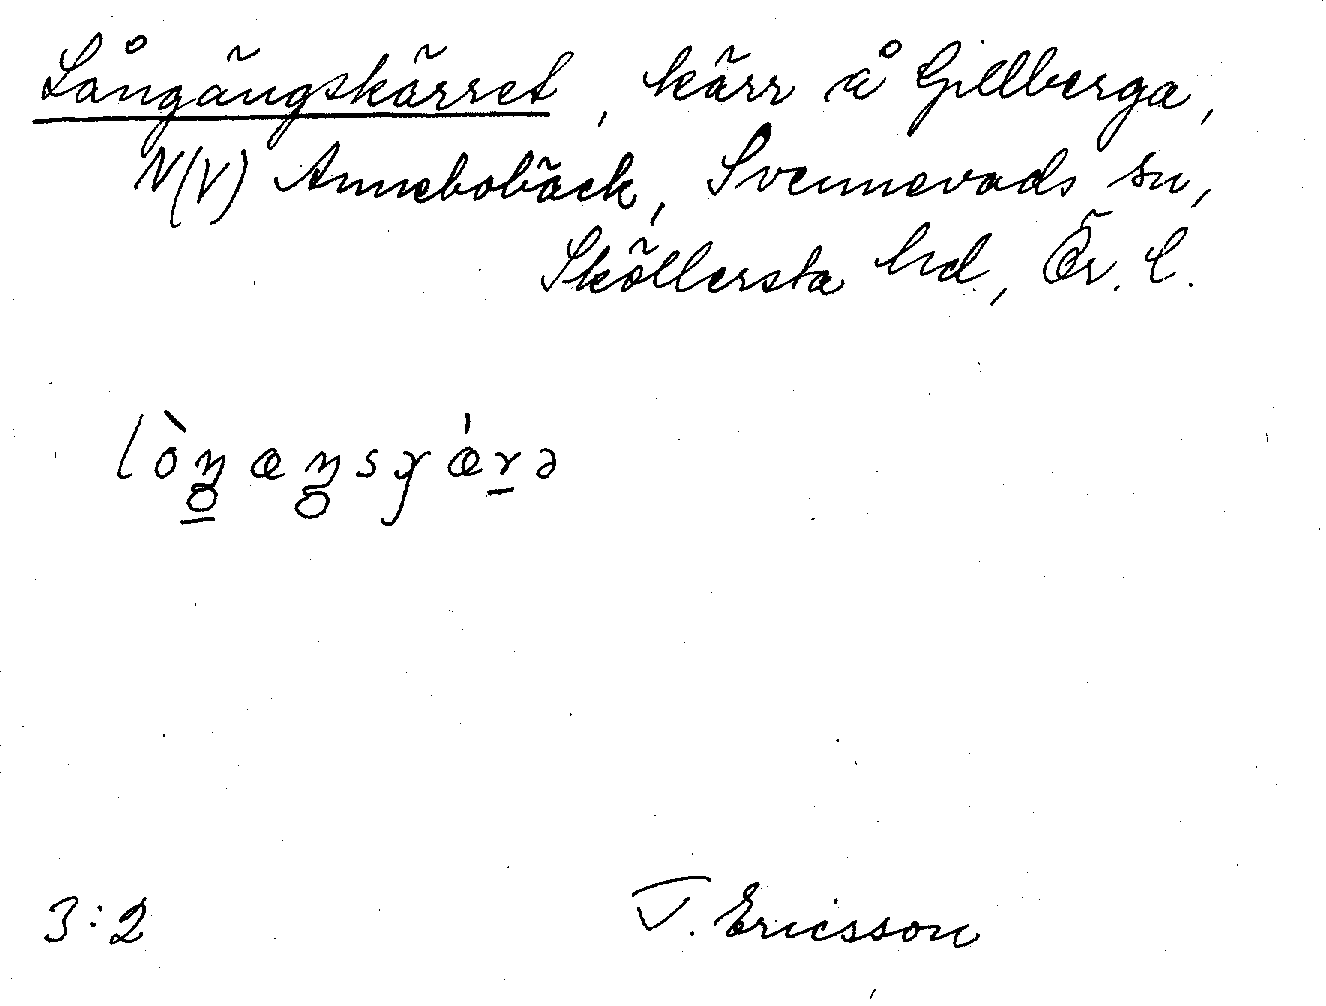 Långängskärret, kärr å Gillberga,
N(V) Annebobäck, Svennevads sn,
Sköllersta hd, Ör. l.
3:2 T. Ericsson